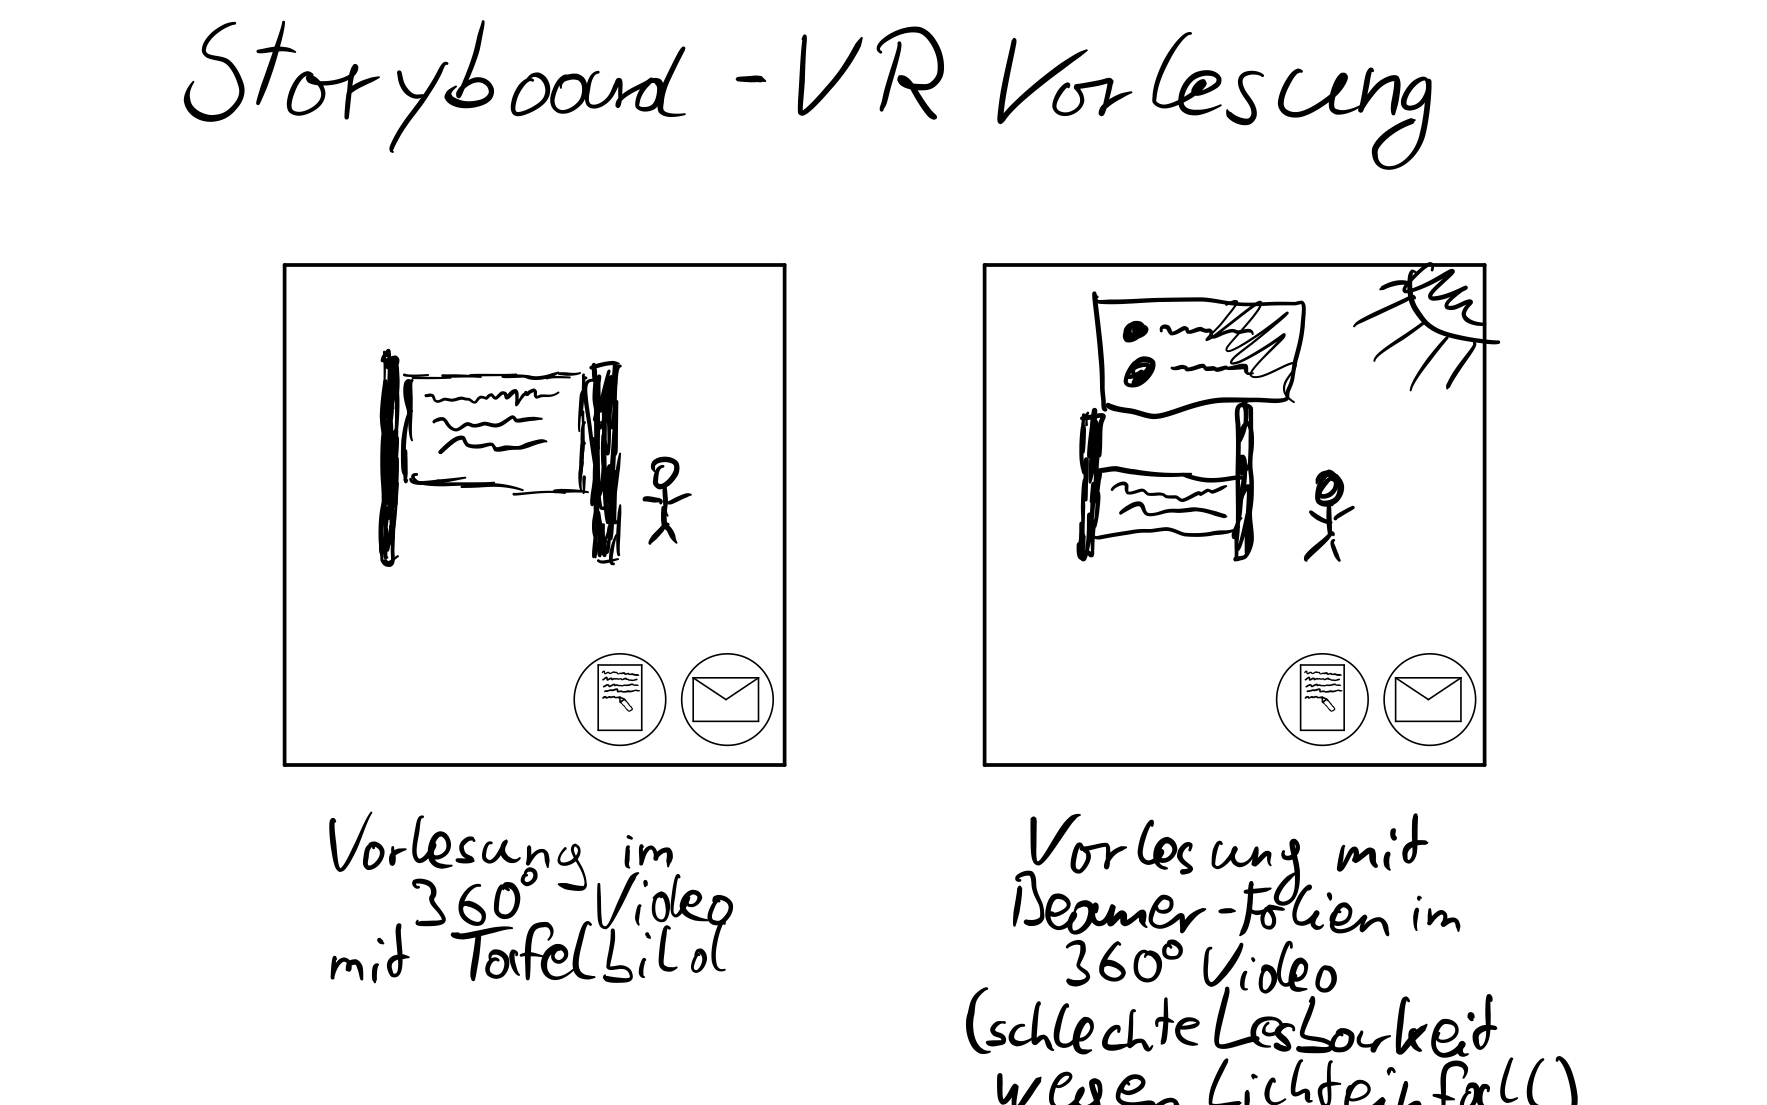 Storyboard - VR Vorlesung
Vorlesung im
360° Video
mit Tafelbild
Vorlesung mit
Beamer-Folien im
360° Video
(schlechte Lesbarkeit
wegen Lichteinfall)